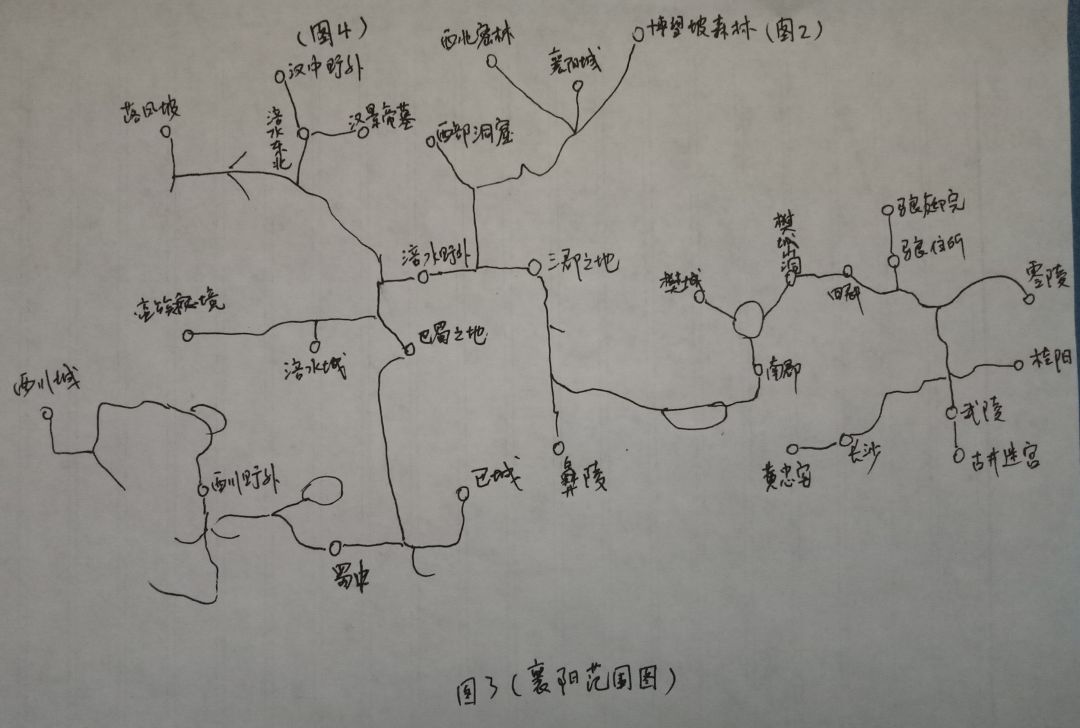 (图4)
汉中野外
西北密林
博望坡森林(图2)
襄阳城
落凤坡
涪水东北
汉景帝墓
西部洞窟
张良卸完
张良住所
樊城山洞
涪水野外
三郡之地
樊城
零陵
巴蜀之地
涪水城
南郡
桂阳
西川城
武陵
古井迷宫
长沙
黄忠穴
彝陵
巴城
西川野外
蜀中
图3(襄阳范围图)